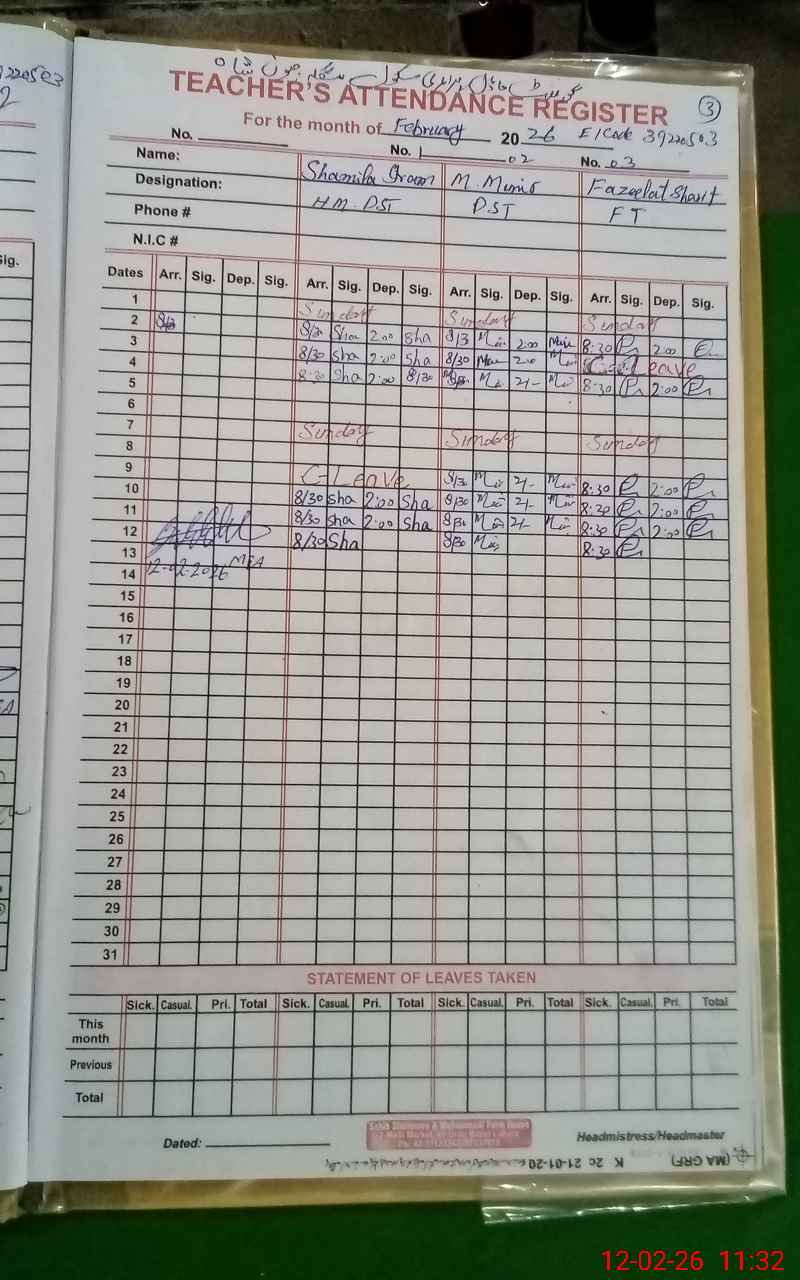 220503
2
TEACHER'S ATTENDANCE REGISTER
3
For the month of February 2026 E/Code 39220503
No. No. 1 02 No. 03
Name: Shamila M. Munir Fazeelat Sharif
Designation: HM. PST PST FT
Phone #
N.I.C #
Sig.
Dates Arr. Sig. Dep. Sig. Arr. Sig. Dep. Sig. Arr. Sig. Dep. Sig. Arr. Sig. Dep. Sig.
1 Sunday Sunday Sunday
2 8/3 8/30 Sha 2:00 Sha 8/3 2:00 8:30 2:00
3 8/30 Sha 2:00 Sha 8/30 2:00 C-Leave
4 8:30 Sha 2:00 8/30 2/- 8:30 2:00
5
6
7 Sunday Sunday Sunday
8
9 C-Leave 8/30 2/- 8:30 2:00
10 8/30 Sha 2:00 Sha 8/30 2/- 8:30 2:00
11 8/30 Sha 2:00 Sha 8/30 2/- 8:30 2:00
12 8/30 Sha 8/30 8:30
13 12-02-2026 MEA
14
15
16
17
18
19
20
21
22
23
24
25
26
27
28
29
30
31
STATEMENT OF LEAVES TAKEN
Sick. Casual. Pri. Total Sick. Casual. Pri. Total Sick. Casual. Pri. Total Sick. Casual. Pri. Total
This month
Previous
Total
Dated: Headmistress/Headmaster
(MA GRF) K 2c 21-01-20
12-02-26 11:32